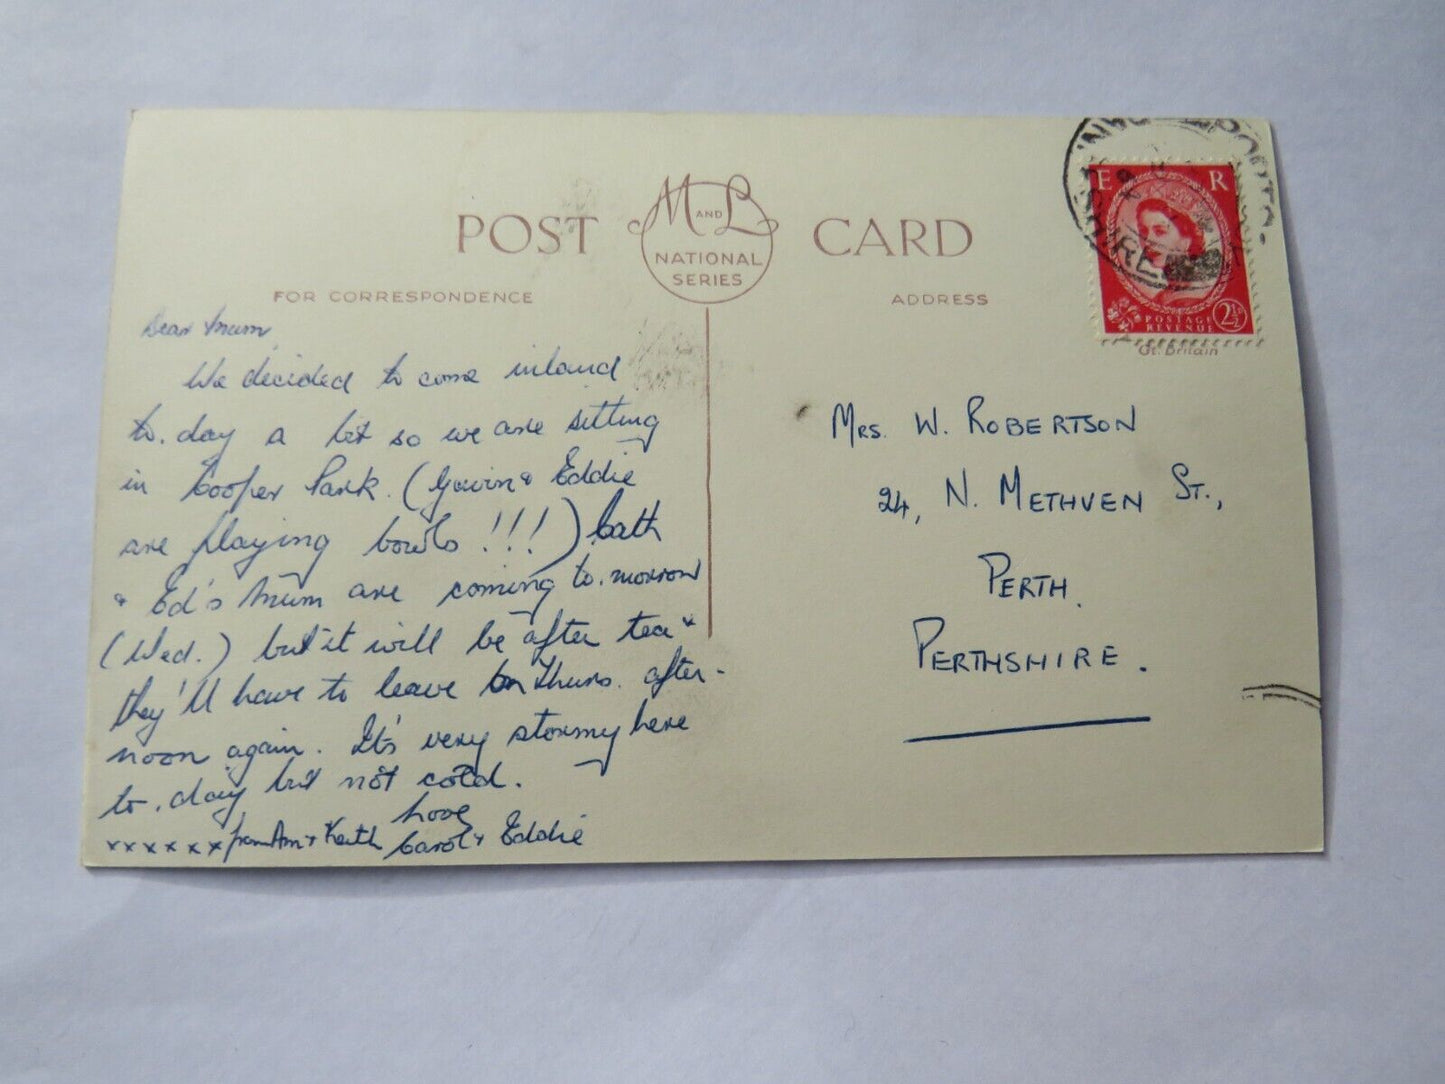 POST CARD
M AND L
NATIONAL
SERIES
FOR CORRESPONDENCE
ADDRESS
Dear Mum,
We decided to come inland
to.day a bit so we are sitting
in Cooper Park. (Gavin & Eddie
are playing bowls !!!) Cath
& Ed's Mum are coming to.morrow
(Wed.) but it will be after tea &
they'll have to leave on Thurs. after-
noon again. It's very stormy here
to.day but not cold.
Love
xxxxxx from Ann & Keith Carol & Eddie
E R
POSTAGE
REVENUE
2½
Gt. Britain
SHIRE
MRS. W. ROBERTSON
24, N. METHVEN ST.,
PERTH.
PERTHSHIRE.